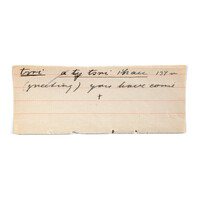 tori a ty tori 137
(greeting) you have come